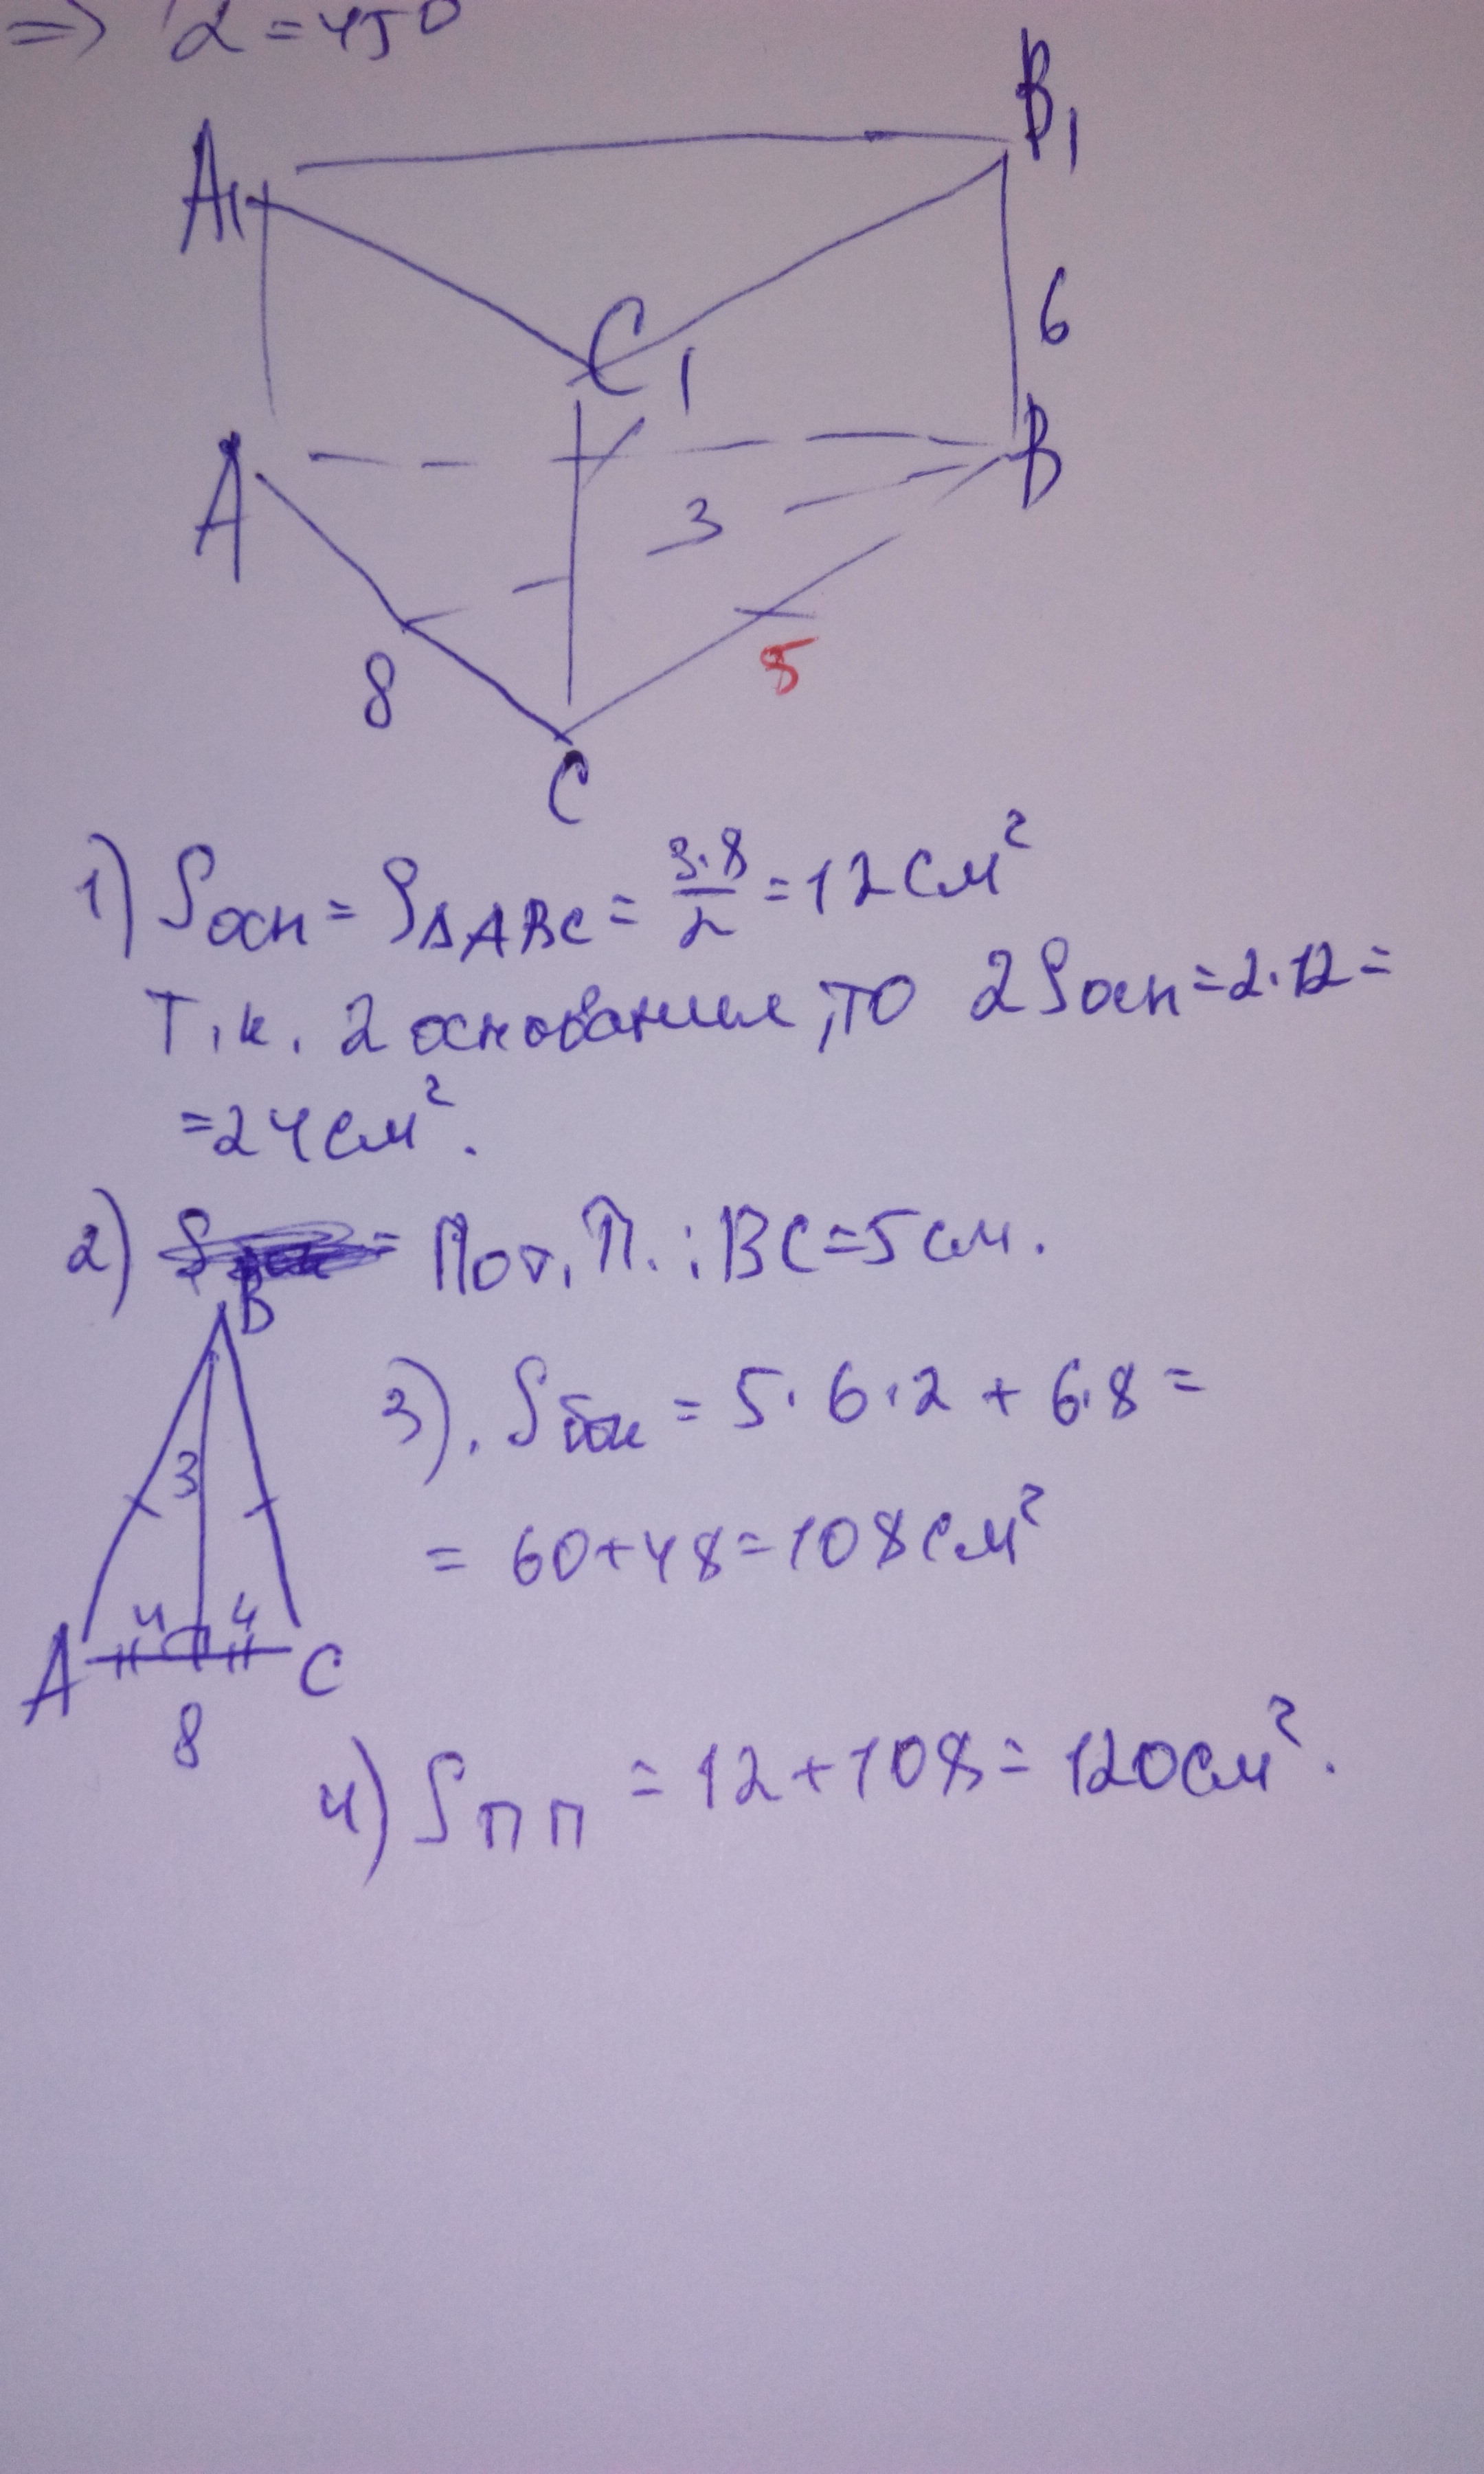 => α = 45°
B₁
A₁
6
C₁
A
B
3
8
5
C
1) Sосн = S∆ABC = 3·8/2 = 12 см²
Т.к. 2 основания, то 2Sосн = 2·12 =
= 24 см².
2) = По т. П. : BC = 5 см.
B
3). Sбок = 5·6·2 + 6·8 =
3
= 60 + 48 = 108 см²
4 4
A C
8
4) Sпп = 12 + 108 = 120 см².